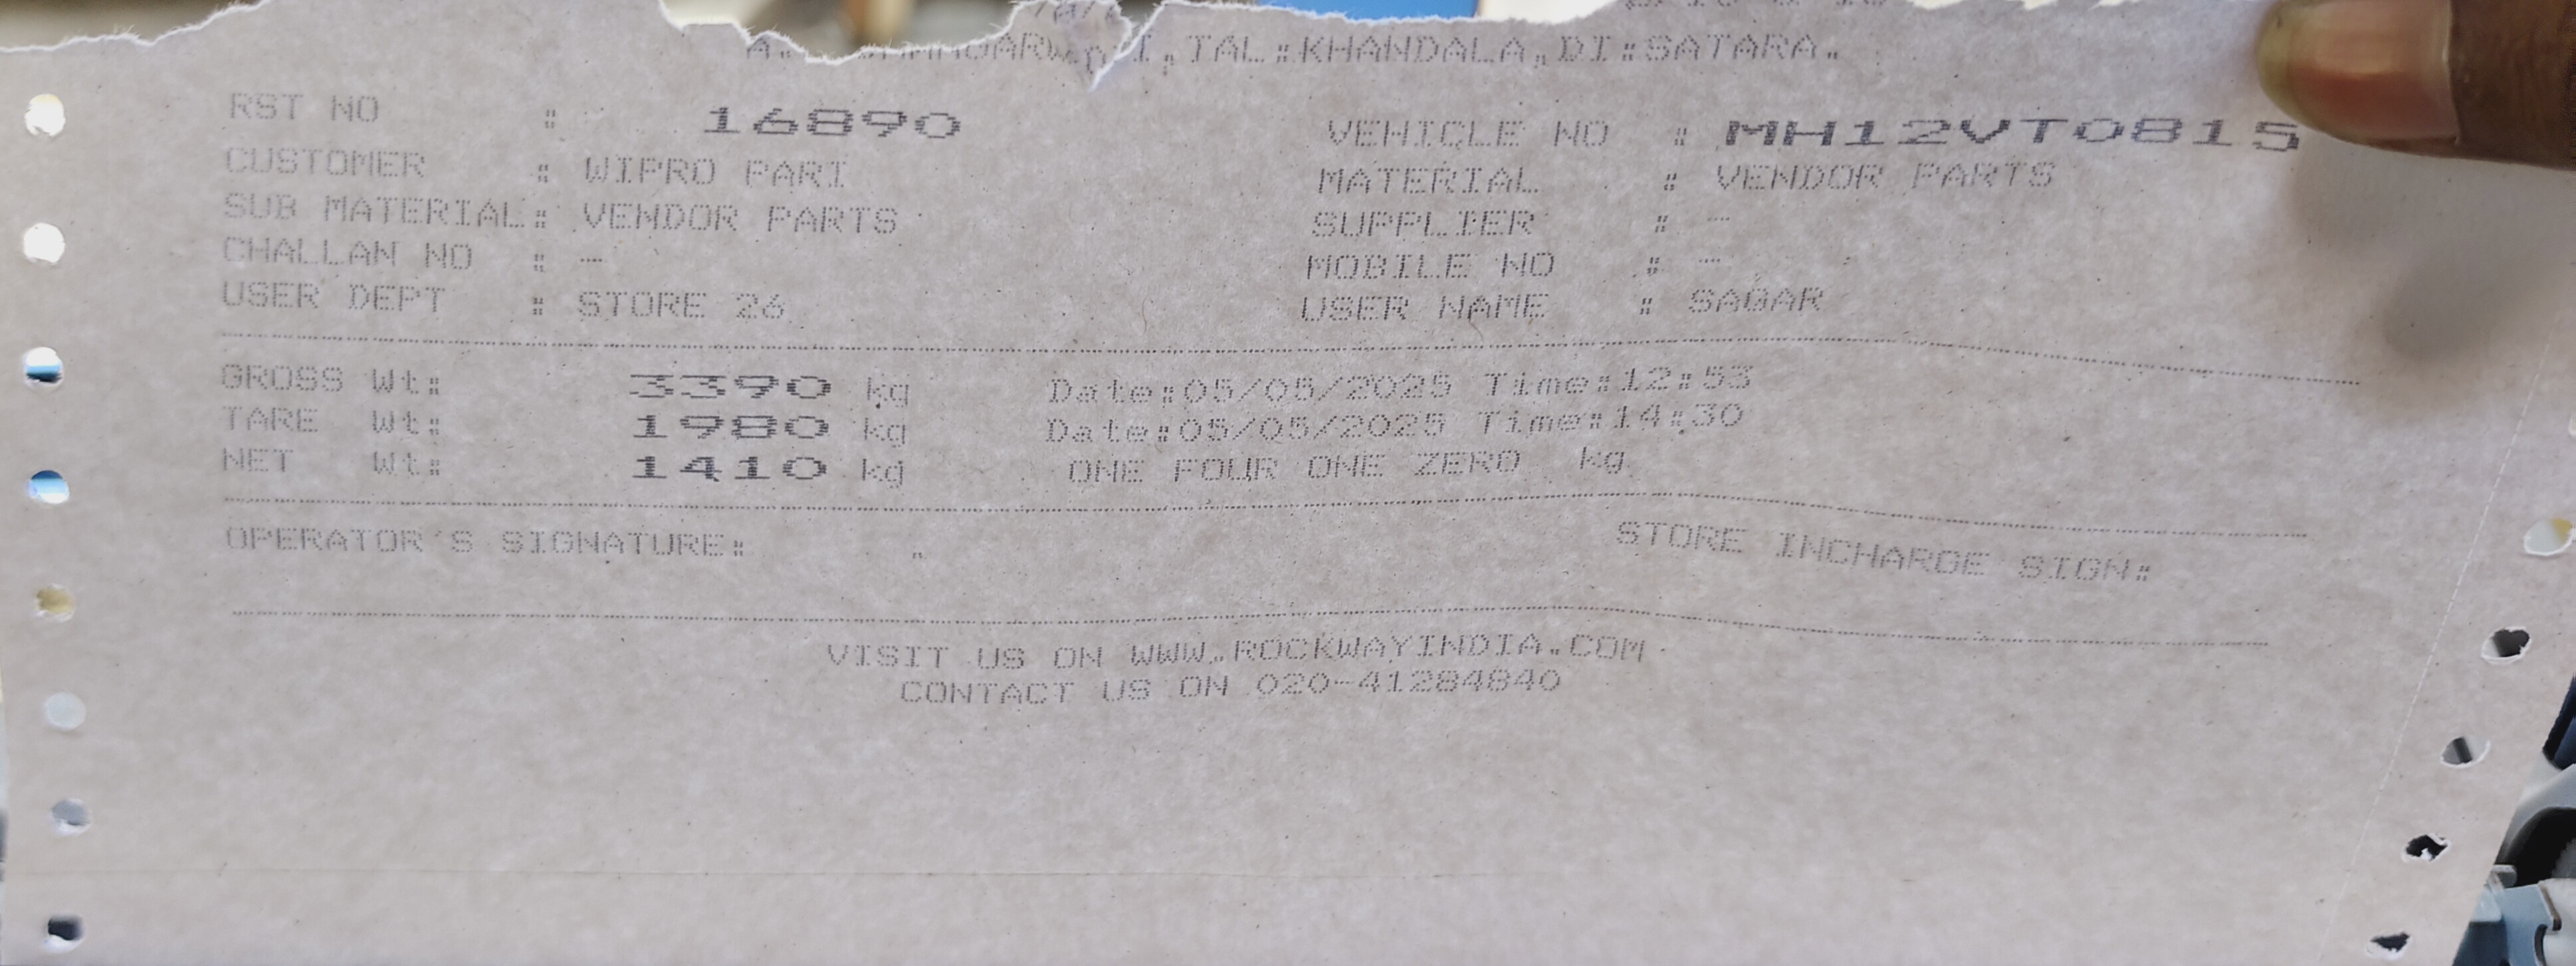 TAL:KHANDALA,DI:SATARA.
RST NO : 16890 VEHICLE NO : MH12VT0815
CUSTOMER : WIPRO PARI MATERIAL : VENDOR PARTS
SUB MATERIAL: VENDOR PARTS SUPPLIER : -
CHALLAN NO : - MOBILE NO : -
USER DEPT : STORE 26 USER NAME : SAGAR
GROSS Wt: 3390 kg Date:05/05/2025 Time:12:53
TARE Wt: 1980 kg Date:05/05/2025 Time:14:30
NET Wt: 1410 kg ONE FOUR ONE ZERO kg
OPERATOR'S SIGNATURE: STORE INCHARGE SIGN:
VISIT US ON WWW.ROCKWAYINDIA.COM
CONTACT US ON 020-41284840